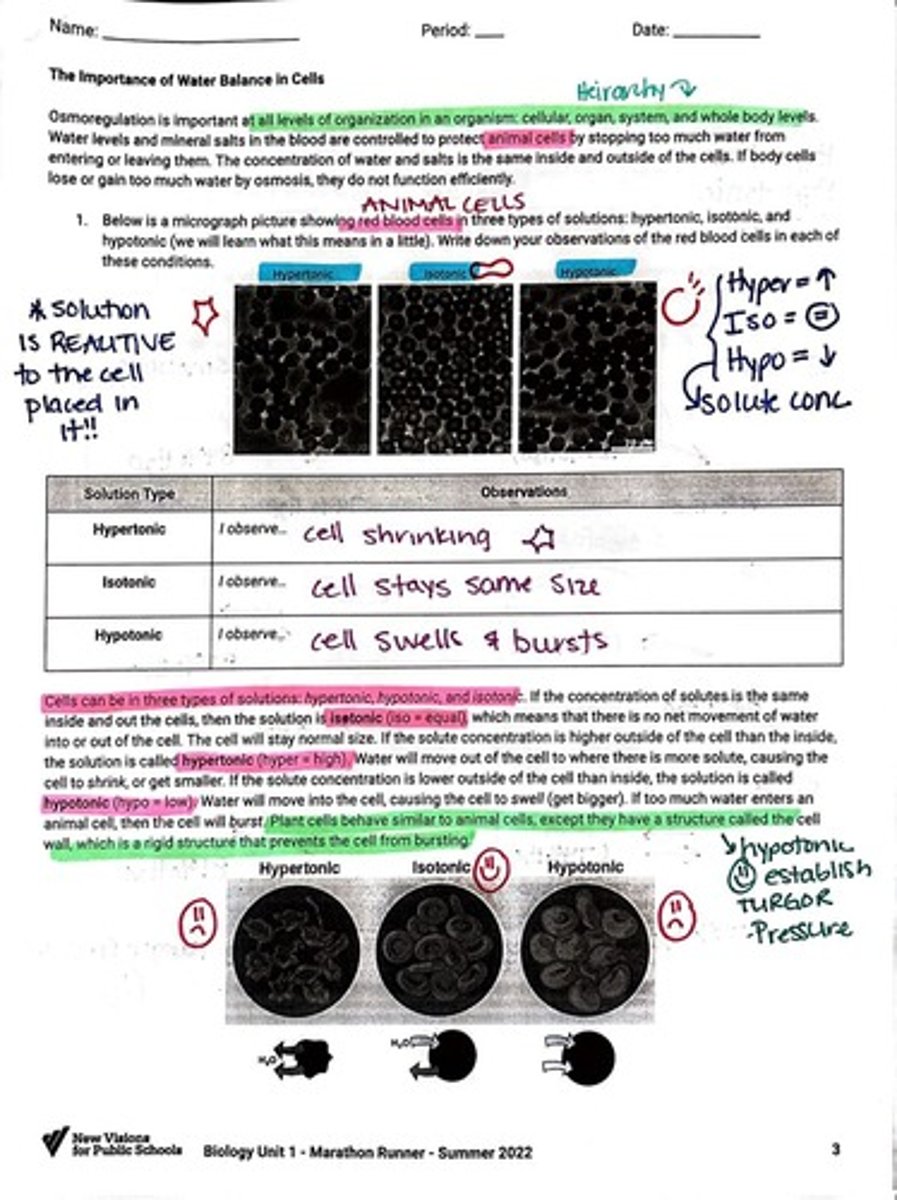 Name: ____________ Period: ___ Date: _______
The Importance of Water Balance in Cells
Heirarchy
Osmoregulation is important at all levels of organization in an organism: cellular, organ, system, and whole body levels.
Water levels and mineral salts in the blood are controlled to protect animal cells by stopping too much water from
entering or leaving them. The concentration of water and salts is the same inside and outside of the cells. If body cells
lose or gain too much water by osmosis, they do not function efficiently.
ANIMAL CELLS
1. Below is a micrograph picture showing red blood cells in three types of solutions: hypertonic, isotonic, and
hypotonic (we will learn what this means in a little). Write down your observations of the red blood cells in each of
these conditions.
Hypertonic Isotonic Hypotonic
* Solution
IS REALITIVE
to the cell
placed in
it!!
Hyper = ↑
Iso = =
Hypo = ↓
solute conc
Solution Type Observations
Hypertonic I observe... cell shrinking
Isotonic I observe... cell stays same size
Hypotonic I observe... cell swells & bursts
Cells can be in three types of solutions: hypertonic, hypotonic, and isotonic. If the concentration of solutes is the same
inside and out the cells, then the solution is isotonic (iso = equal), which means that there is no net movement of water
into or out of the cell. The cell will stay normal size. If the solute concentration is higher outside of the cell than the inside,
the solution is called hypertonic (hyper = high). Water will move out of the cell to where there is more solute, causing the
cell to shrink, or get smaller. If the solute concentration is lower outside of the cell than inside, the solution is called
hypotonic (hypo = low). Water will move into the cell, causing the cell to swell (get bigger). If too much water enters an
animal cell, then the cell will burst. Plant cells behave similar to animal cells, except they have a structure called the cell
wall, which is a rigid structure that prevents the cell from bursting.
hypotonic
establish
TURGOR
-Pressure
Hypertonic Isotonic Hypotonic
H₂O H₂O
New Visions
for Public Schools
Biology Unit 1 - Marathon Runner - Summer 2022 3